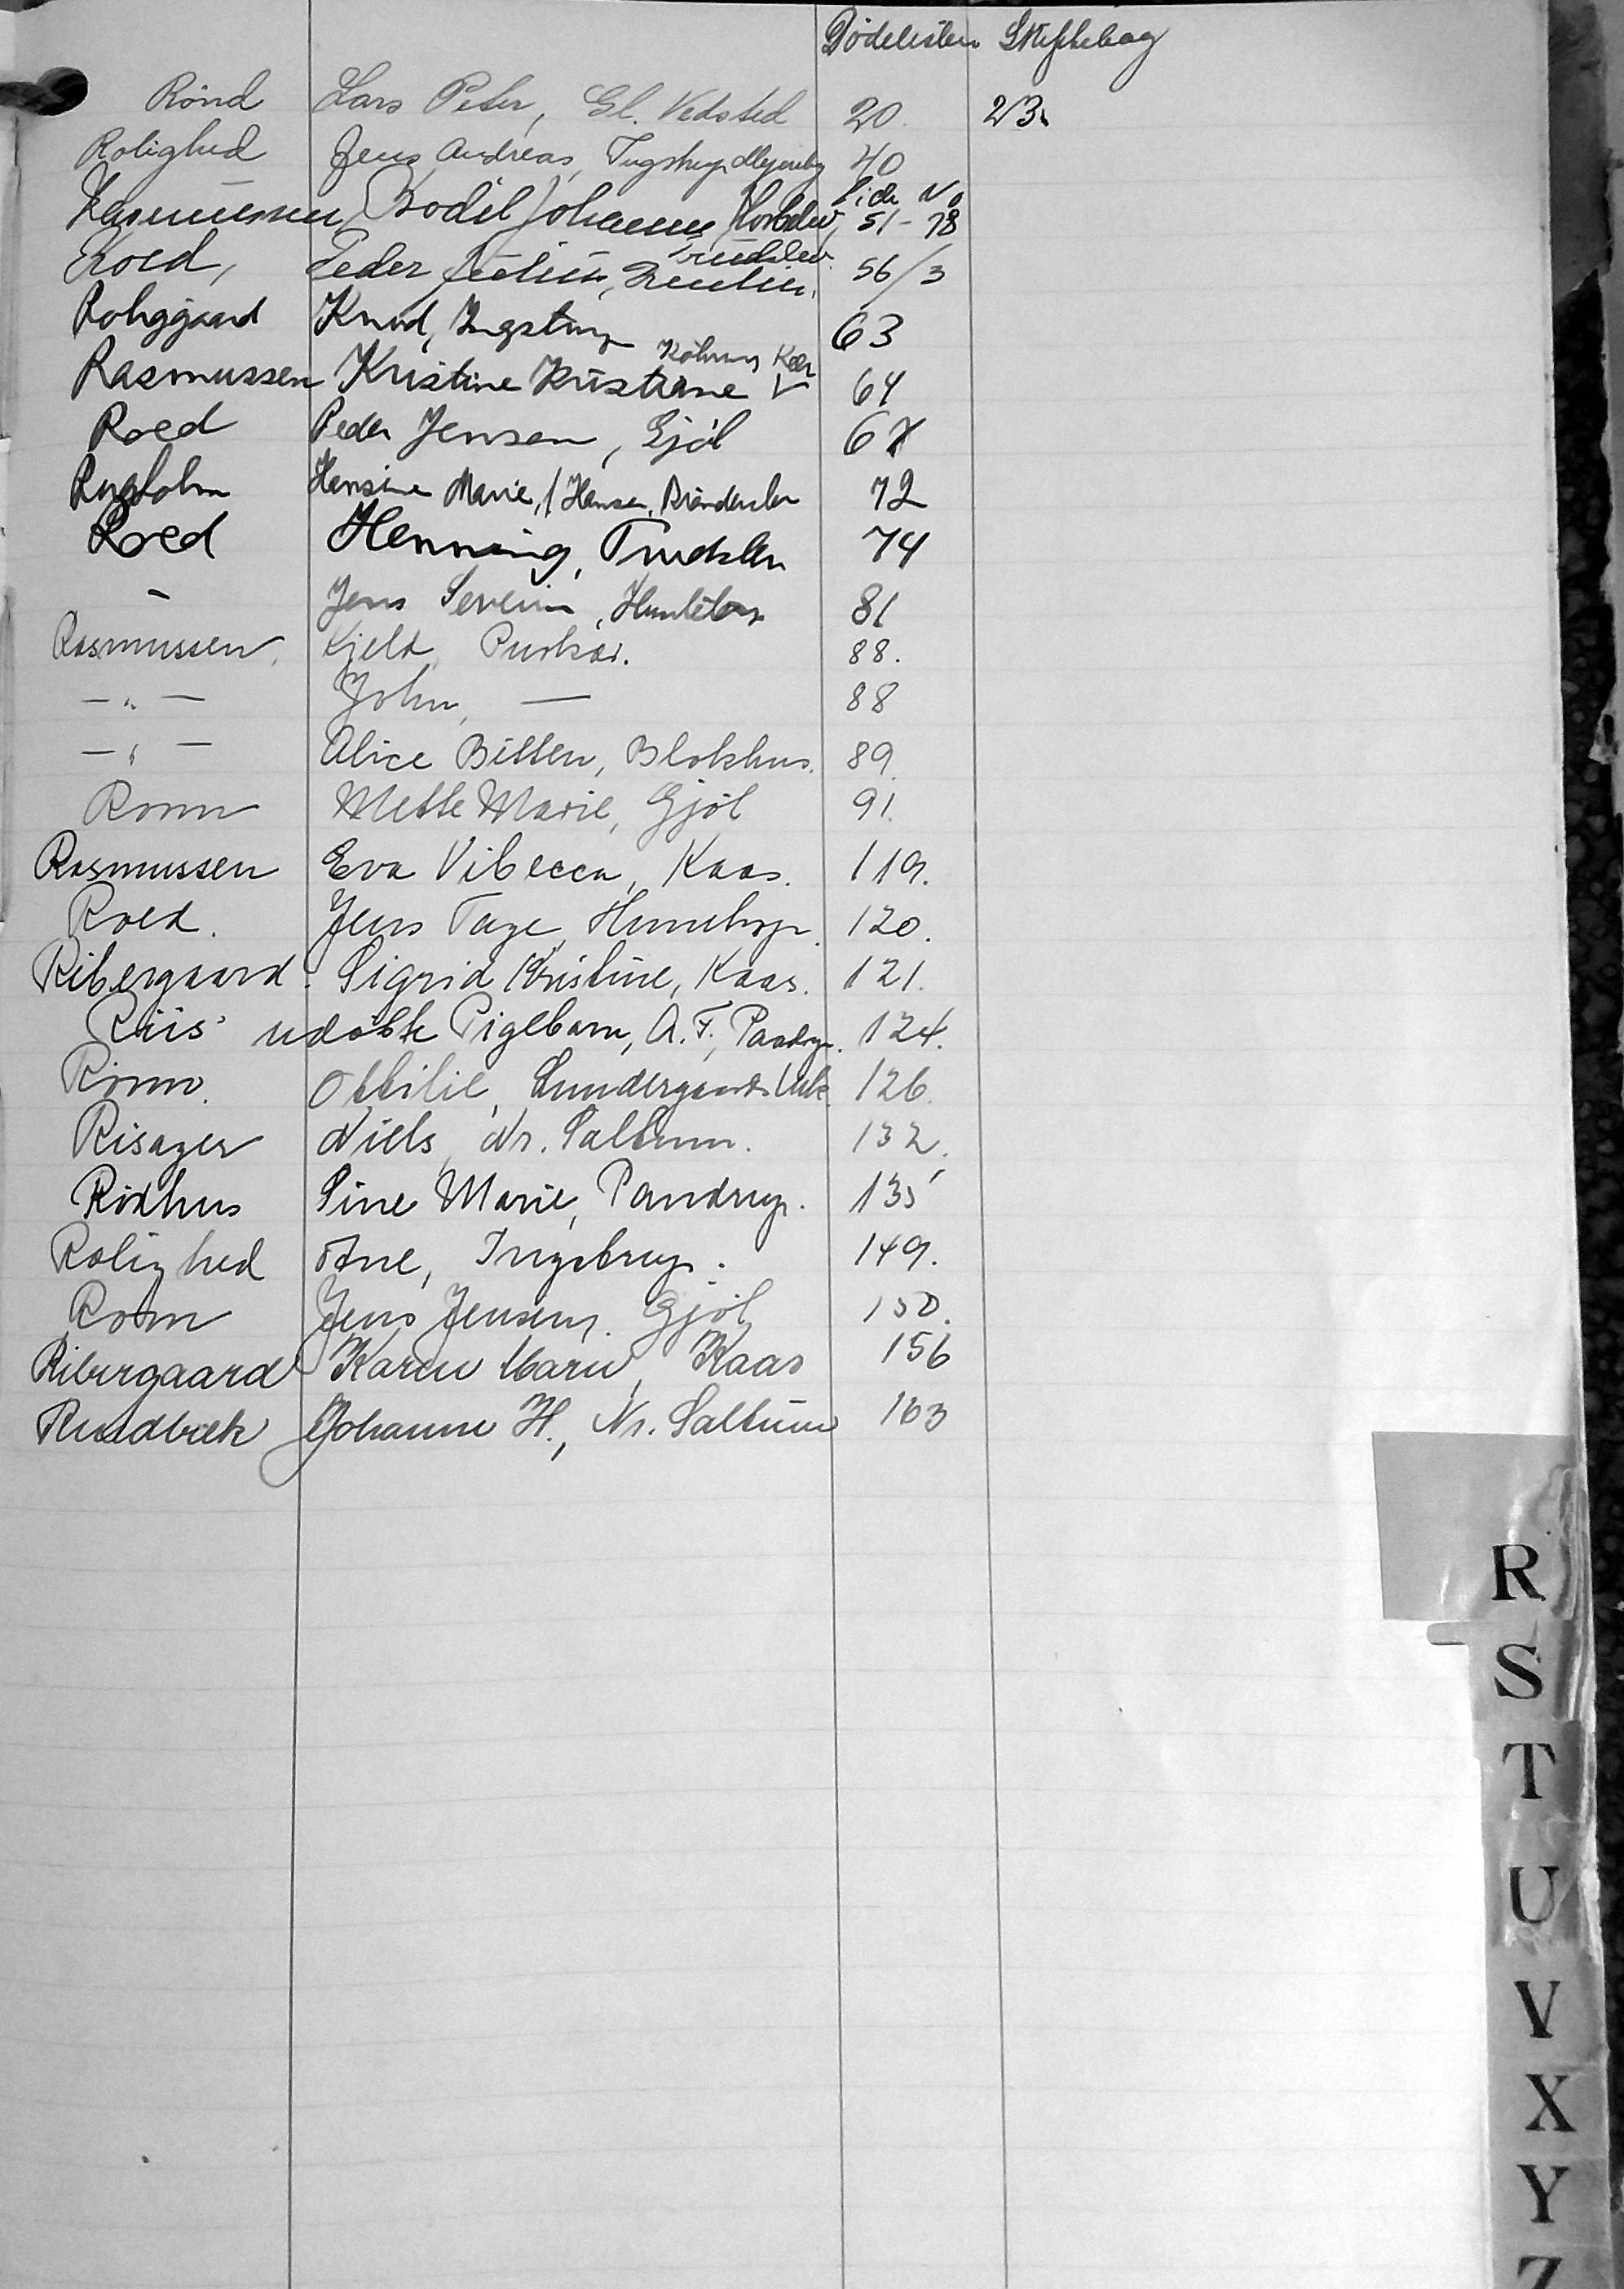 Dödelisten Skiftebog
Rönd Lars Peter, Gl. Vedsted 20. 23.
Rolighed Jens Andreas, Ingstrup Mejeriby 40
Side No
Rasmussen, Bodil Johanne 51-78
Trudslev
Roed, Peder Julius, 56/3
Knud, Ingstrup 63
Kær
Rasmussen Kristine Kristiane V 64
Roed Peder Jensen, Gjöl 67
Hansine Marie, f. Hansen, 72
Roed Henning, Trudslev 74
– Jens Severin, Hunetorp 81
Rasmussen, Kjeld, Purkær. 88.
— „ — John, — 88
— „ — Alice Bitten, Blokhus. 89.
Romn Mette Marie, Gjöl 91.
Rasmussen Eva Vibecca, Kaas. 119.
Roed. Jens Tage, Hunetorp. 120.
Ribergaard. Sigrid Kristine, Kaas. 121.
Riis' udöbte Pigebarn, A. F., Pandrup. 124.
Romn. Ottilie, 126.
Risager Niels, Nr. Saltum. 132.
Rödhus Sine Marie, Pandrup. 135
Rolighed Ane, Ingstrup. 149.
Romn Jens Jensen. Gjöl 150.
Ribergaard Karen Marie, Kaas 156
Rundbæk Johanne H., Nr. Saltum 163
R
S
T
U
V
X
Y
Z